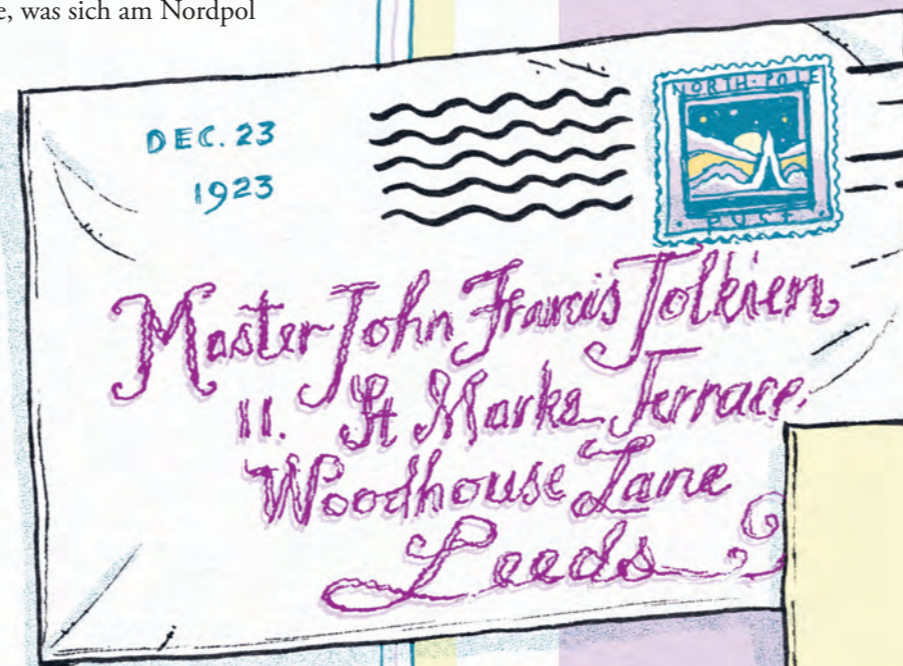 e, was sich am Nordpol
DEC. 23
1923
NORTH-POLE
POST
Master John Francis Tolkien
11. St Marks Terrace,
Woodhouse Lane
Leeds